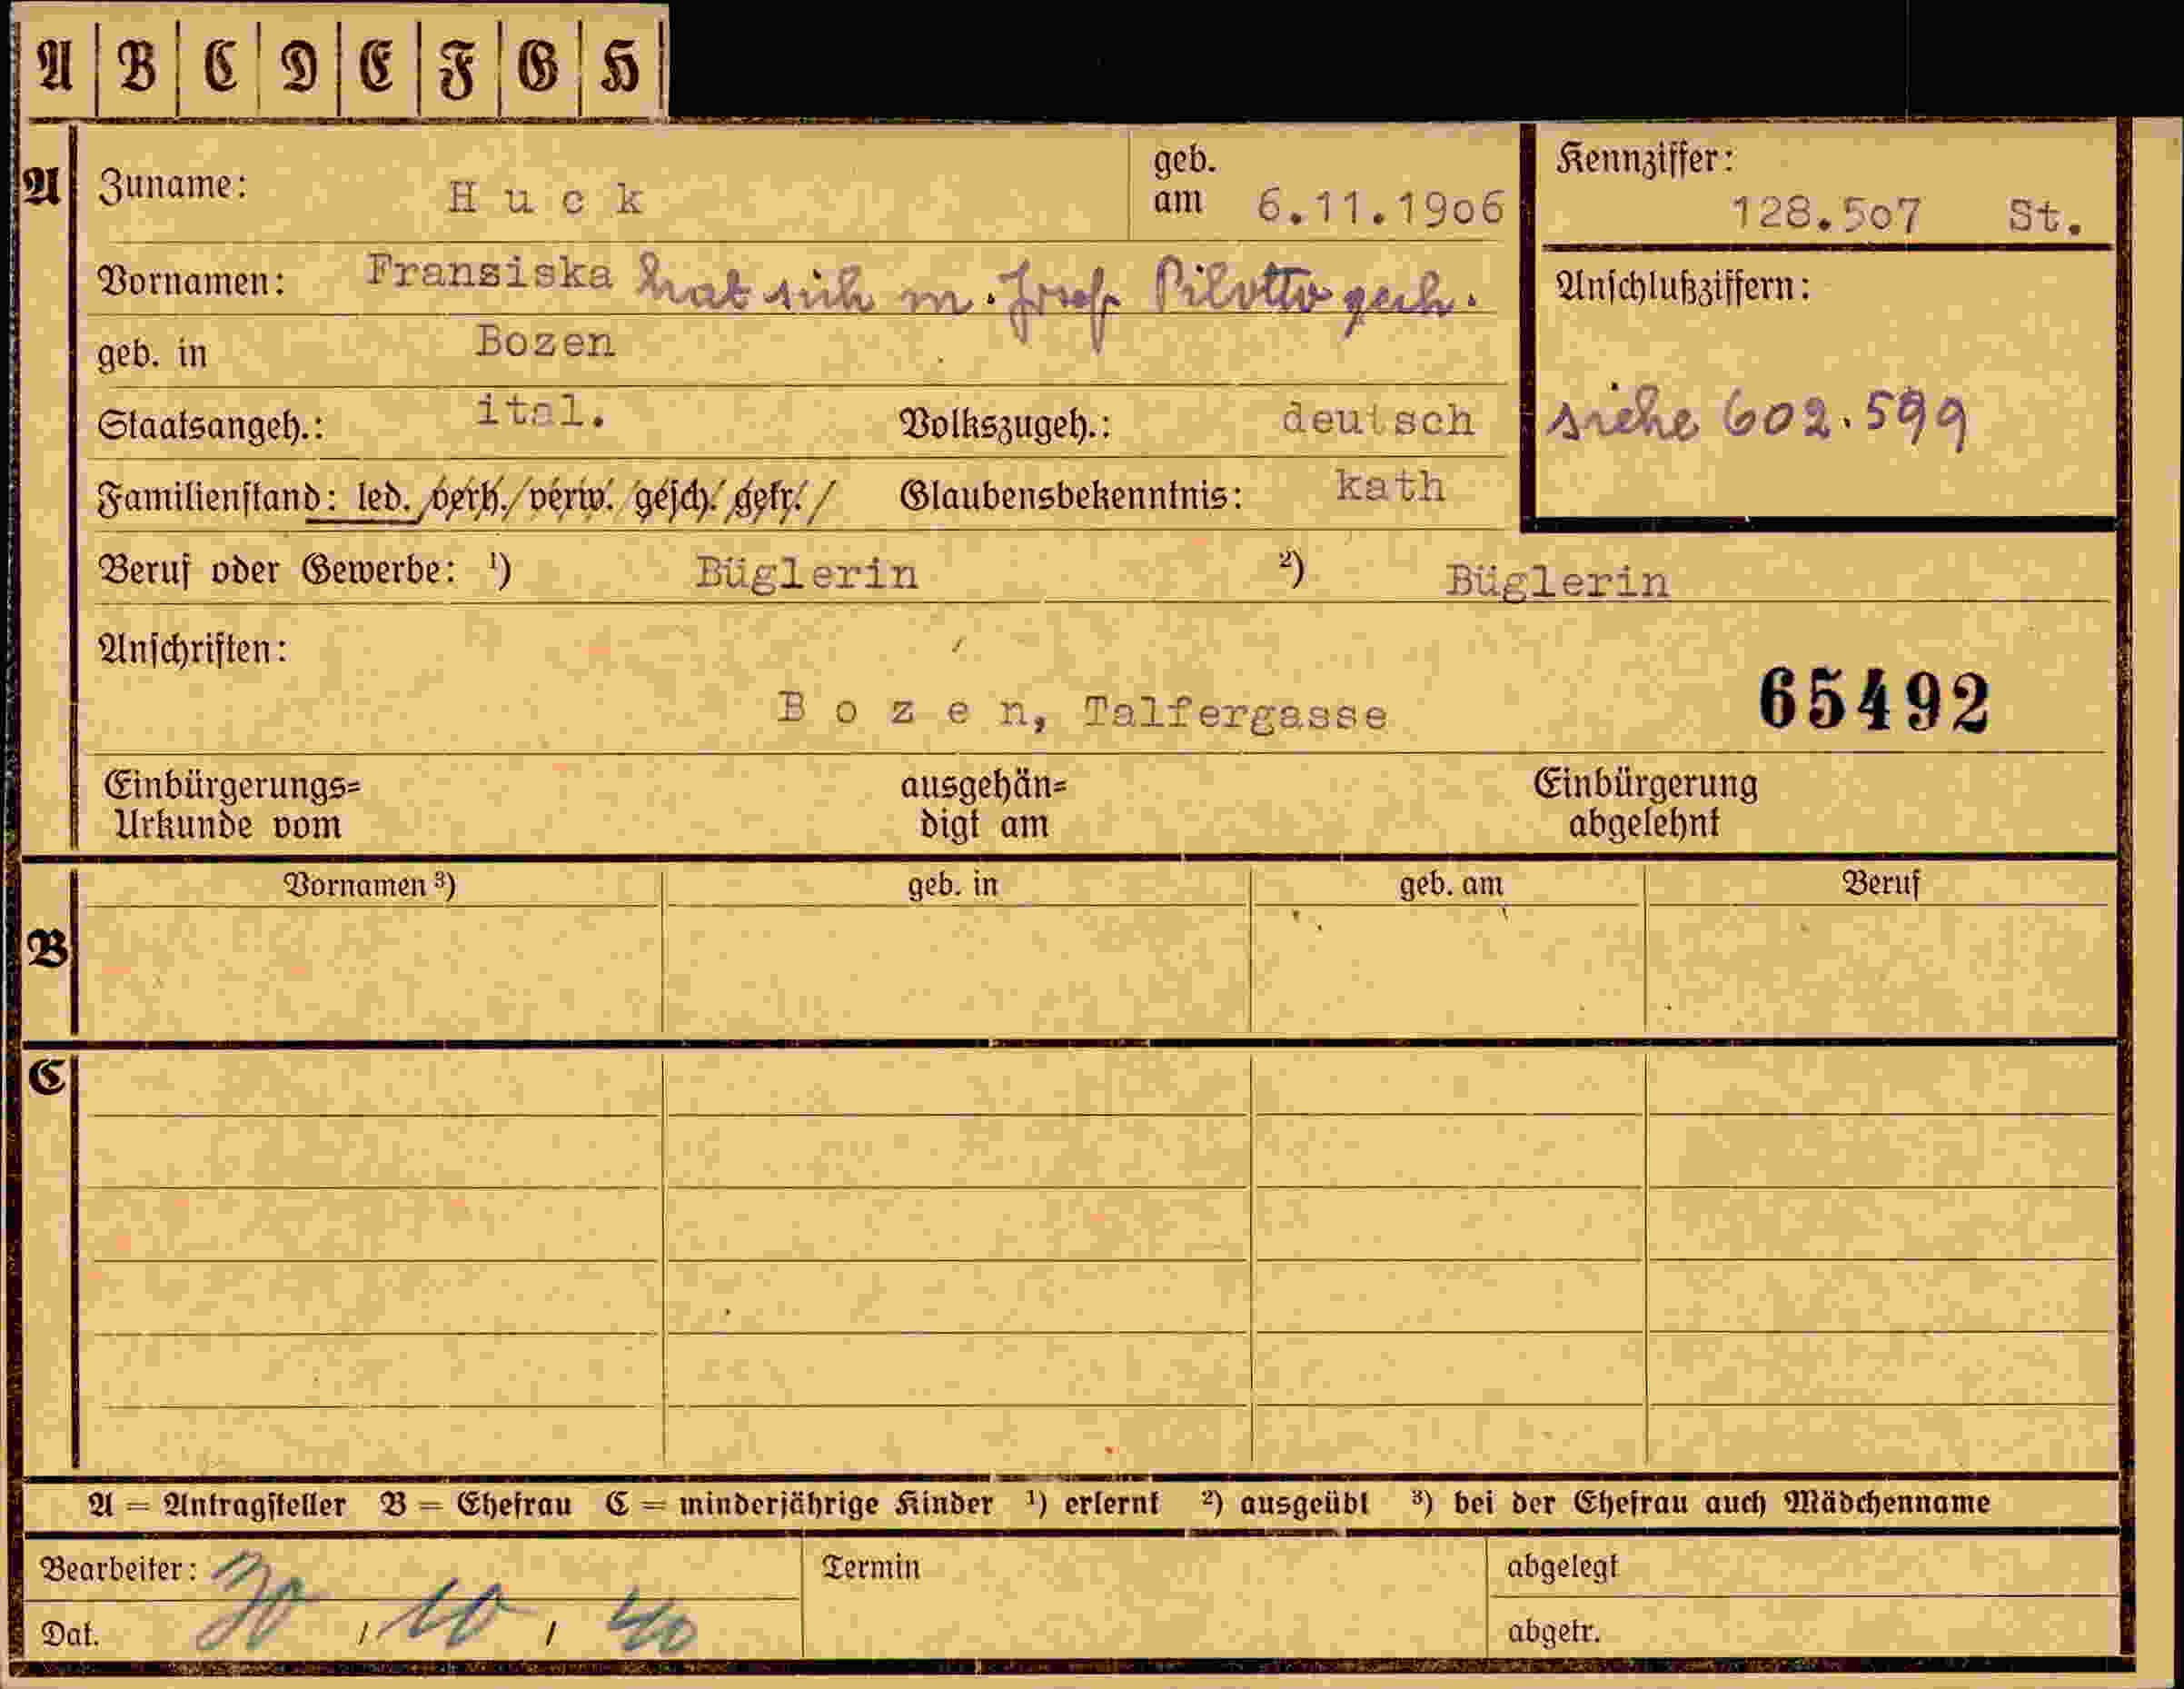 A B C D E F G H
A Zuname: Huck geb. am 6.11.1906 Kennziffer: 128.507 St.
Vornamen: Fransiska hat sich m. Josef Pilotto geeh. Anschlußziffern:
geb. in Bozen
Staatsangeh.: ital. Volkszugeh.: deutsch siehe 602.599
Familienstand: led./verh./verw./gesch./getr./ Glaubensbekenntnis: kath
Beruf oder Gewerbe: ¹) Büglerin ²) Büglerin
Anschriften:
Bozen, Talfergasse 65492
Einbürgerungs= ausgehän= Einbürgerung
Urkunde vom digt am abgelehnt
Vornamen ³) geb. in geb. am Beruf
B
C
A = Antragsteller B = Ehefrau C = minderjährige Kinder ¹) erlernt ²) ausgeübt ³) bei der Ehefrau auch Mädchenname
Bearbeiter: Termin abgelegt
Dat. 30 / 10 / 40 abgetr.